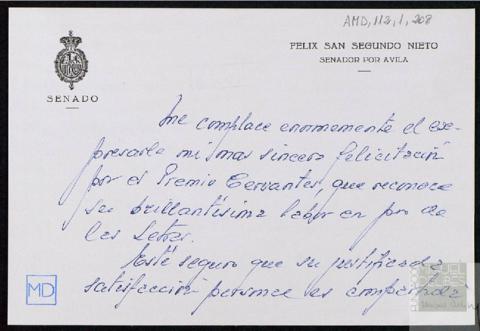 AMD, 112, 1, 208
FELIX SAN SEGUNDO NIETO
SENADOR POR AVILA
SENADO
Me complace enormemente el ex-
presarle mi mas sincera felicitación
por el Premio Cervantes, que reconoce
su brillantísima labor en pro de
las Letras.
Esté seguro que su justificada
satisfacción personal es compartida
MD